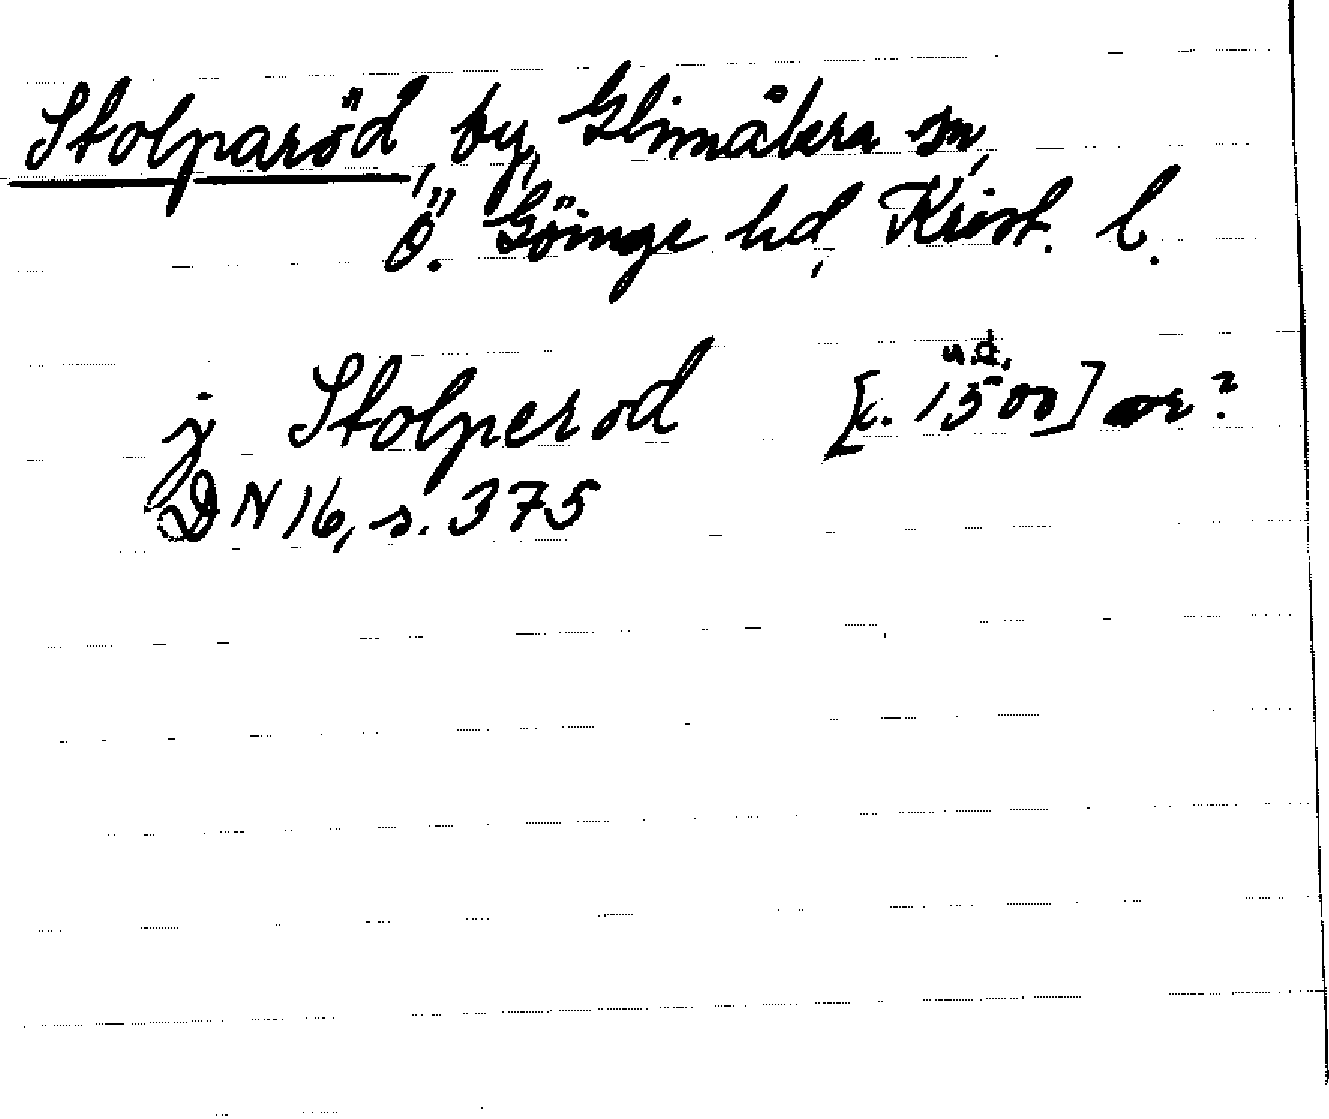 Stolparöd, by, Glimåkra sn,
Ö. Göinge hd, Krist. l.
j Stolperod [c. 1500] u.d. or?
DN 16, s. 375